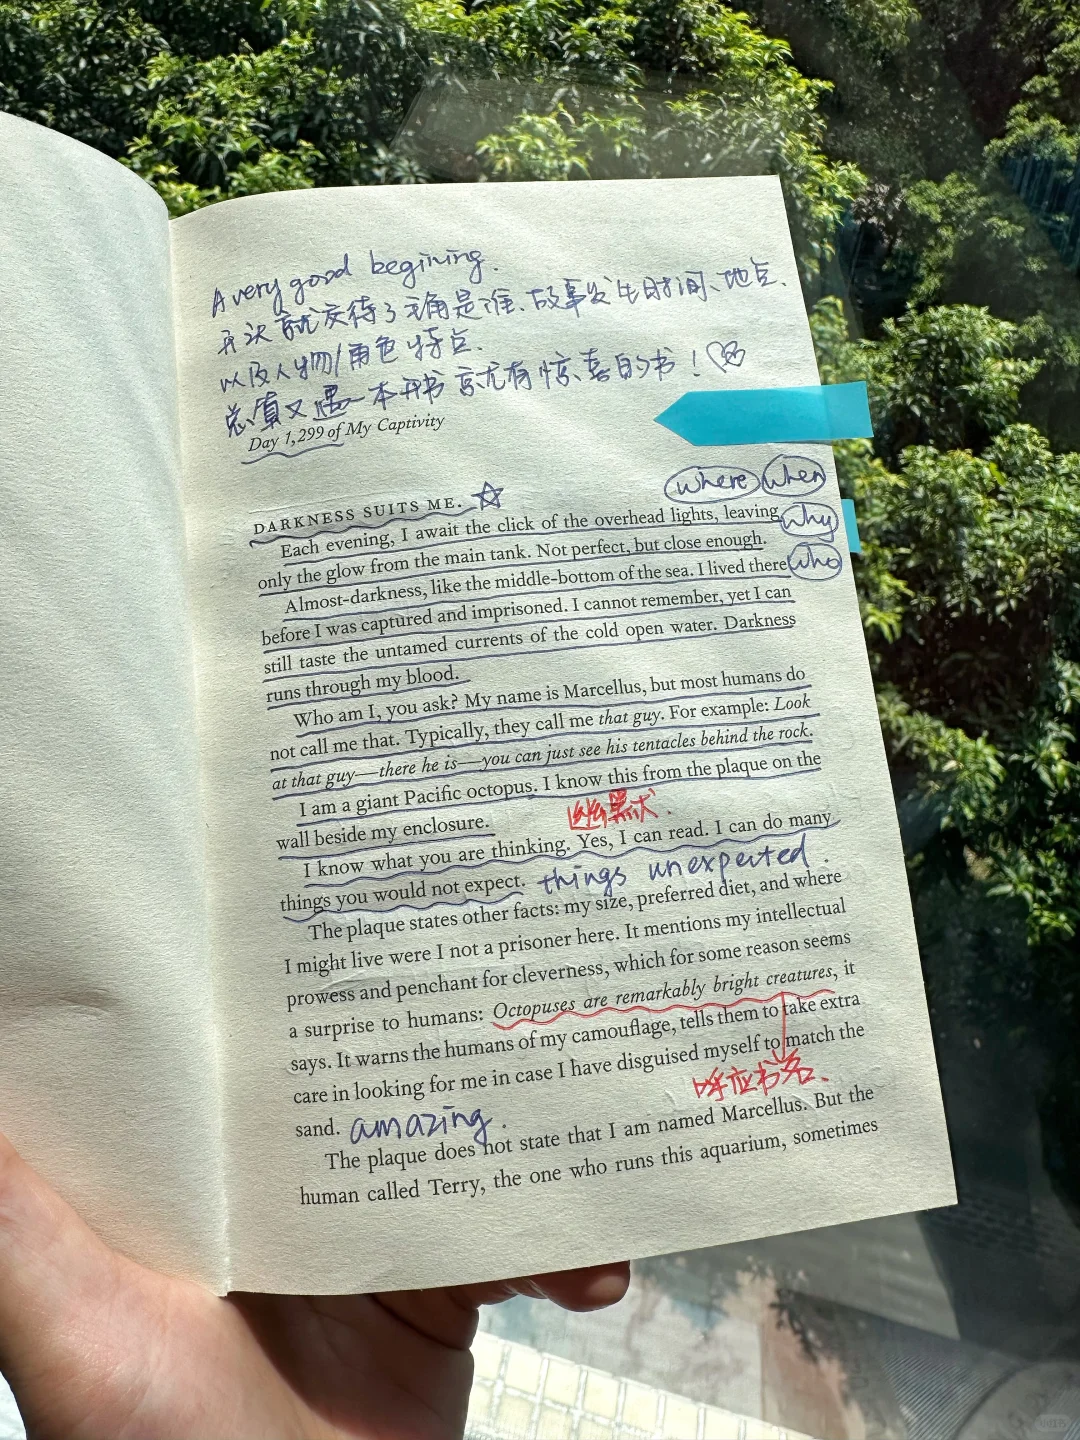 A very good begining.
开头就交待了主角是谁、故事发生时间、地点、
以及人物/角色特点.
又遇一本开书就有惊喜的书！
Day 1,299 of My Captivity
where when
DARKNESS SUITS ME.
Each evening, I await the click of the overhead lights, leaving
why
only the glow from the main tank. Not perfect, but close enough.
Almost-darkness, like the middle-bottom of the sea. I lived there
who
before I was captured and imprisoned. I cannot remember, yet I can
still taste the untamed currents of the cold open water. Darkness
runs through my blood.
Who am I, you ask? My name is Marcellus, but most humans do
not call me that. Typically, they call me that guy. For example: Look
at that guy—there he is—you can just see his tentacles behind the rock.
I am a giant Pacific octopus. I know this from the plaque on the
wall beside my enclosure.
幽默.
I know what you are thinking. Yes, I can read. I can do many
things you would not expect. things unexpected.
The plaque states other facts: my size, preferred diet, and where
I might live were I not a prisoner here. It mentions my intellectual
prowess and penchant for cleverness, which for some reason seems
a surprise to humans: Octopuses are remarkably bright creatures, it
says. It warns the humans of my camouflage, tells them to take extra
care in looking for me in case I have disguised myself to match the
呼应书名.
sand. amazing.
The plaque does not state that I am named Marcellus. But the
human called Terry, the one who runs this aquarium, sometimes